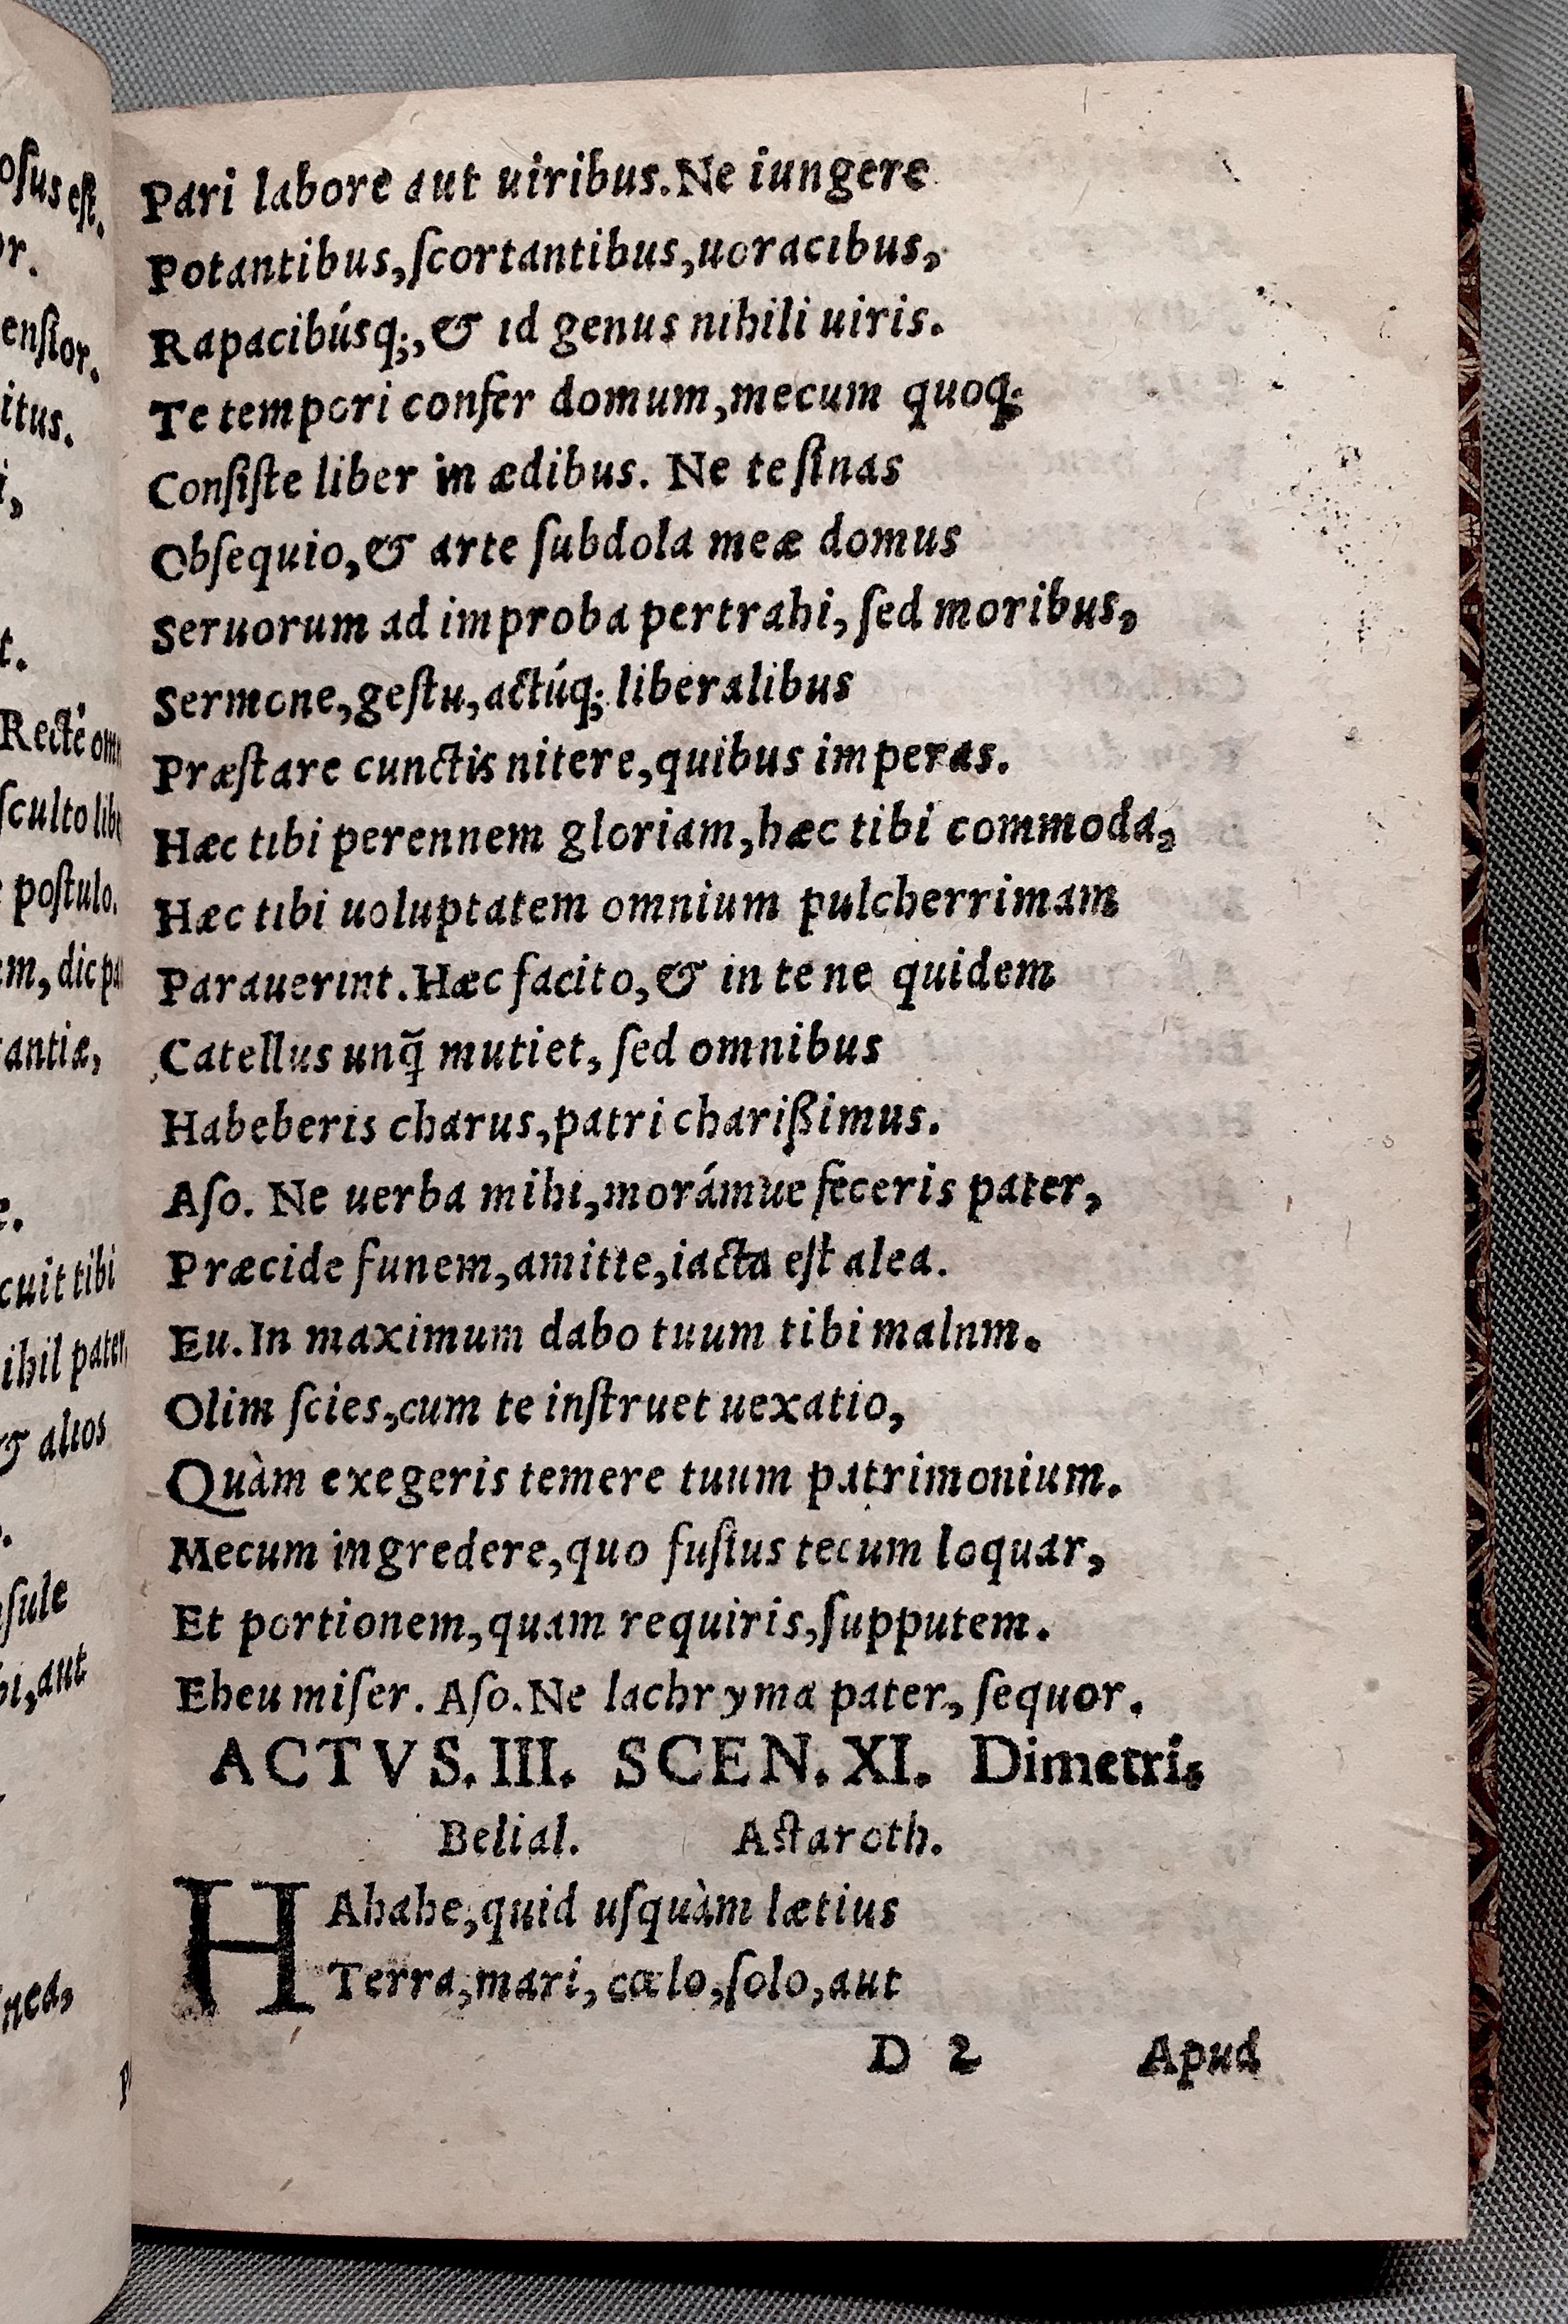 Pari labore aut uiribus. Ne iungere
Potantibus, ſcortantibus, uoracibus,
Rapacibúsq;, & id genus nihili uiris.
Te tempori confer domum, mecum quoq;
Conſiſte liber in ædibus. Ne te ſinas
Obſequio, & arte ſubdola meæ domus
Seruorum ad improba pertrahi, ſed moribus,
Sermone, geſtu, actúq; liberalibus
Præſtare cunctis nitere, quibus imperas.
Hæc tibi perennem gloriam, hæc tibi commoda,
Hæc tibi uoluptatem omnium pulcherrimam
Parauerint. Hæc facito, & in te ne quidem
Catellus unq̃ mutiet, ſed omnibus
Habeberis charus, patri charißimus.
Aſo. Ne uerba mihi, morámue feceris pater,
Præcide funem, amitte, iacta eſt alea.
Eu. In maximum dabo tuum tibi malnm.
Olim ſcies, cum te inſtruet uexatio,
Quàm exegeris temere tuum patrimonium.
Mecum ingredere, quo fuſius tecum loquar,
Et portionem, quam requiris, ſupputem.
Eheu miſer. Aſo. Ne lachryma pater, ſequor.
ACTVS. III. SCEN. XI. Dimetri,
Belial. Aſtaroth.
HAhahe, quid uſquàm lætius
Terra, mari, cœlo, ſolo, aut
D 2 Apud